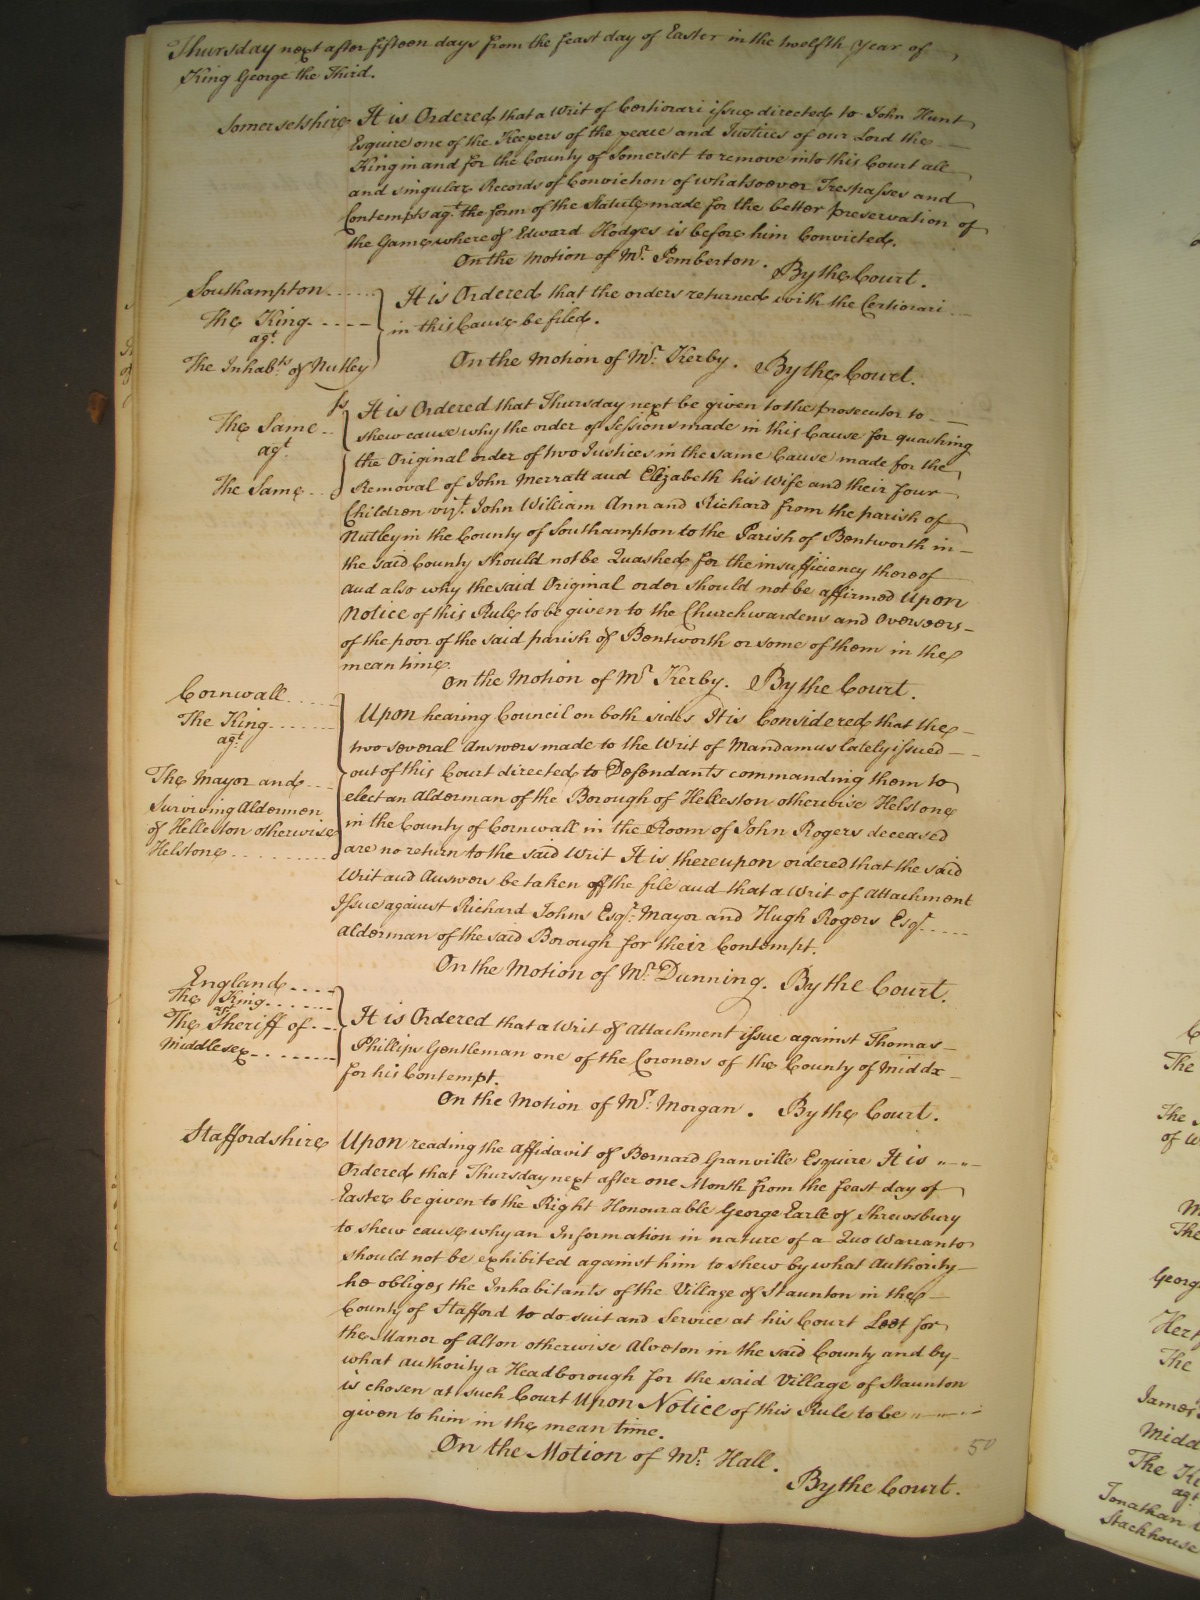 Thursday next after fifteen days from the feast day of Easter in the twelfth Year of
King George the Third.
Somersetshire It is Ordered that a Writ of Certiorari issue directed to John Hunt
Esquire one of the Keepers of the peace and Justices of our Lord the
King in and for the County of Somerset to remove into this Court all
and singular Records of Conviction of whatsoever Trespasses and
Contempts agt. the form of the Statute made for the better preservation of
the Game whereof Edward Hodges is before him Convicted.
On the Motion of Mr. Pemberton. By the Court.
Southampton
The King
agt.
The Inhabts. of Nutley
It is Ordered that the orders returned with the Certiorari
in this Cause be filed.
On the Motion of Mr. Kerby. By the Court.
ss
The Same
agt.
The Same
It is Ordered that Thursday next be given to the prosecutor to
shew cause why the order of Sessions made in this Cause for quashing
the Original order of two Justices in the same Cause made for the
Removal of John Merratt and Elizabeth his Wife and their four
Children vizt. John William Ann and Richard from the parish of
Nutley in the County of Southampton to the Parish of Bentworth in
the said County should not be Quashed for the insufficiency thereof
and also why the said Original order should not be affirmed Upon
Notice of this Rule to be given to the Churchwardens and Overseers
of the poor of the said parish of Bentworth or some of them in the
mean time.
On the Motion of Mr. Kerby. By the Court.
Cornwall
The King
agt.
The Mayor and
Surviving Aldermen
of Helleston otherwise
Helstone
Upon hearing Council on both sides It is Considered that the
two several Answers made to the Writ of Mandamus lately issued
out of this Court directed to Defendants commanding them to
elect an Alderman of the Borough of Helleston otherwise Helstone
in the County of Cornwall in the Room of John Rogers deceased
are no return to the said Writ It is thereupon ordered that the said
Writ and Answers be taken off the file and that a Writ of Attachment
Issue against Richard Johns Esqr. Mayor and Hugh Rogers Esqr.
Alderman of the said Borough for their Contempt.
On the Motion of Mr. Dunning. By the Court.
England
The King
agt.
The Sheriff of
Middlesex
It is Ordered that a Writ of Attachment issue against Thomas
Phillips Gentleman one of the Coroners of the County of Middx
for his Contempt.
On the Motion of Mr. Morgan. By the Court.
Staffordshire Upon reading the affidavit of Bernard Granville Esquire It is
Ordered that Thursday next after one Month from the feast day of
Easter be given to the Right Honourable George Earle of Shrewsbury
to shew cause why an Information in nature of a Quo Warranto
should not be exhibited against him to shew by what Authority
he obliges the Inhabitants of the Village of Staunton in the
County of Stafford to do suit and Service at his Court Leet for
the Manor of Alton otherwise Alveton in the said County and by
what authority a Headborough for the said Village of Staunton
is chosen at such Court Upon Notice of this Rule to be
given to him in the mean time.
On the Motion of Mr. Hall.
By the Court.
50
The
The
of W
The
Georg
Hert
The
James
Midd
The Ki
agt.
Jonathan
Stackhouse